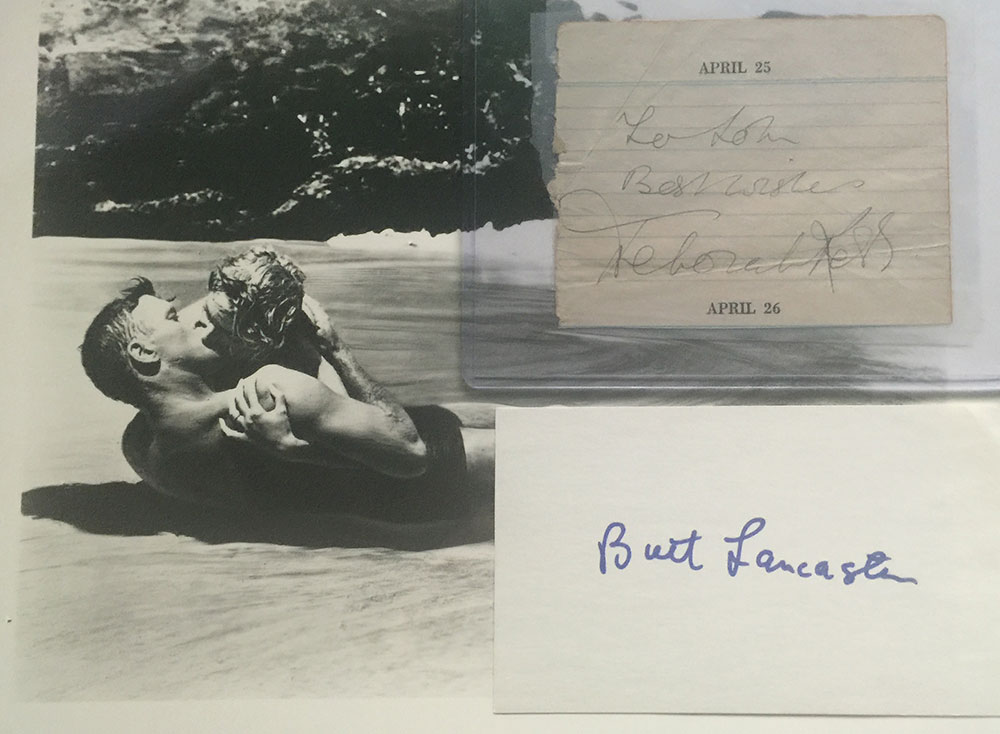 APRIL 25
To John
Best wishes
Deborah Kerr
APRIL 26
Burt Lancaster